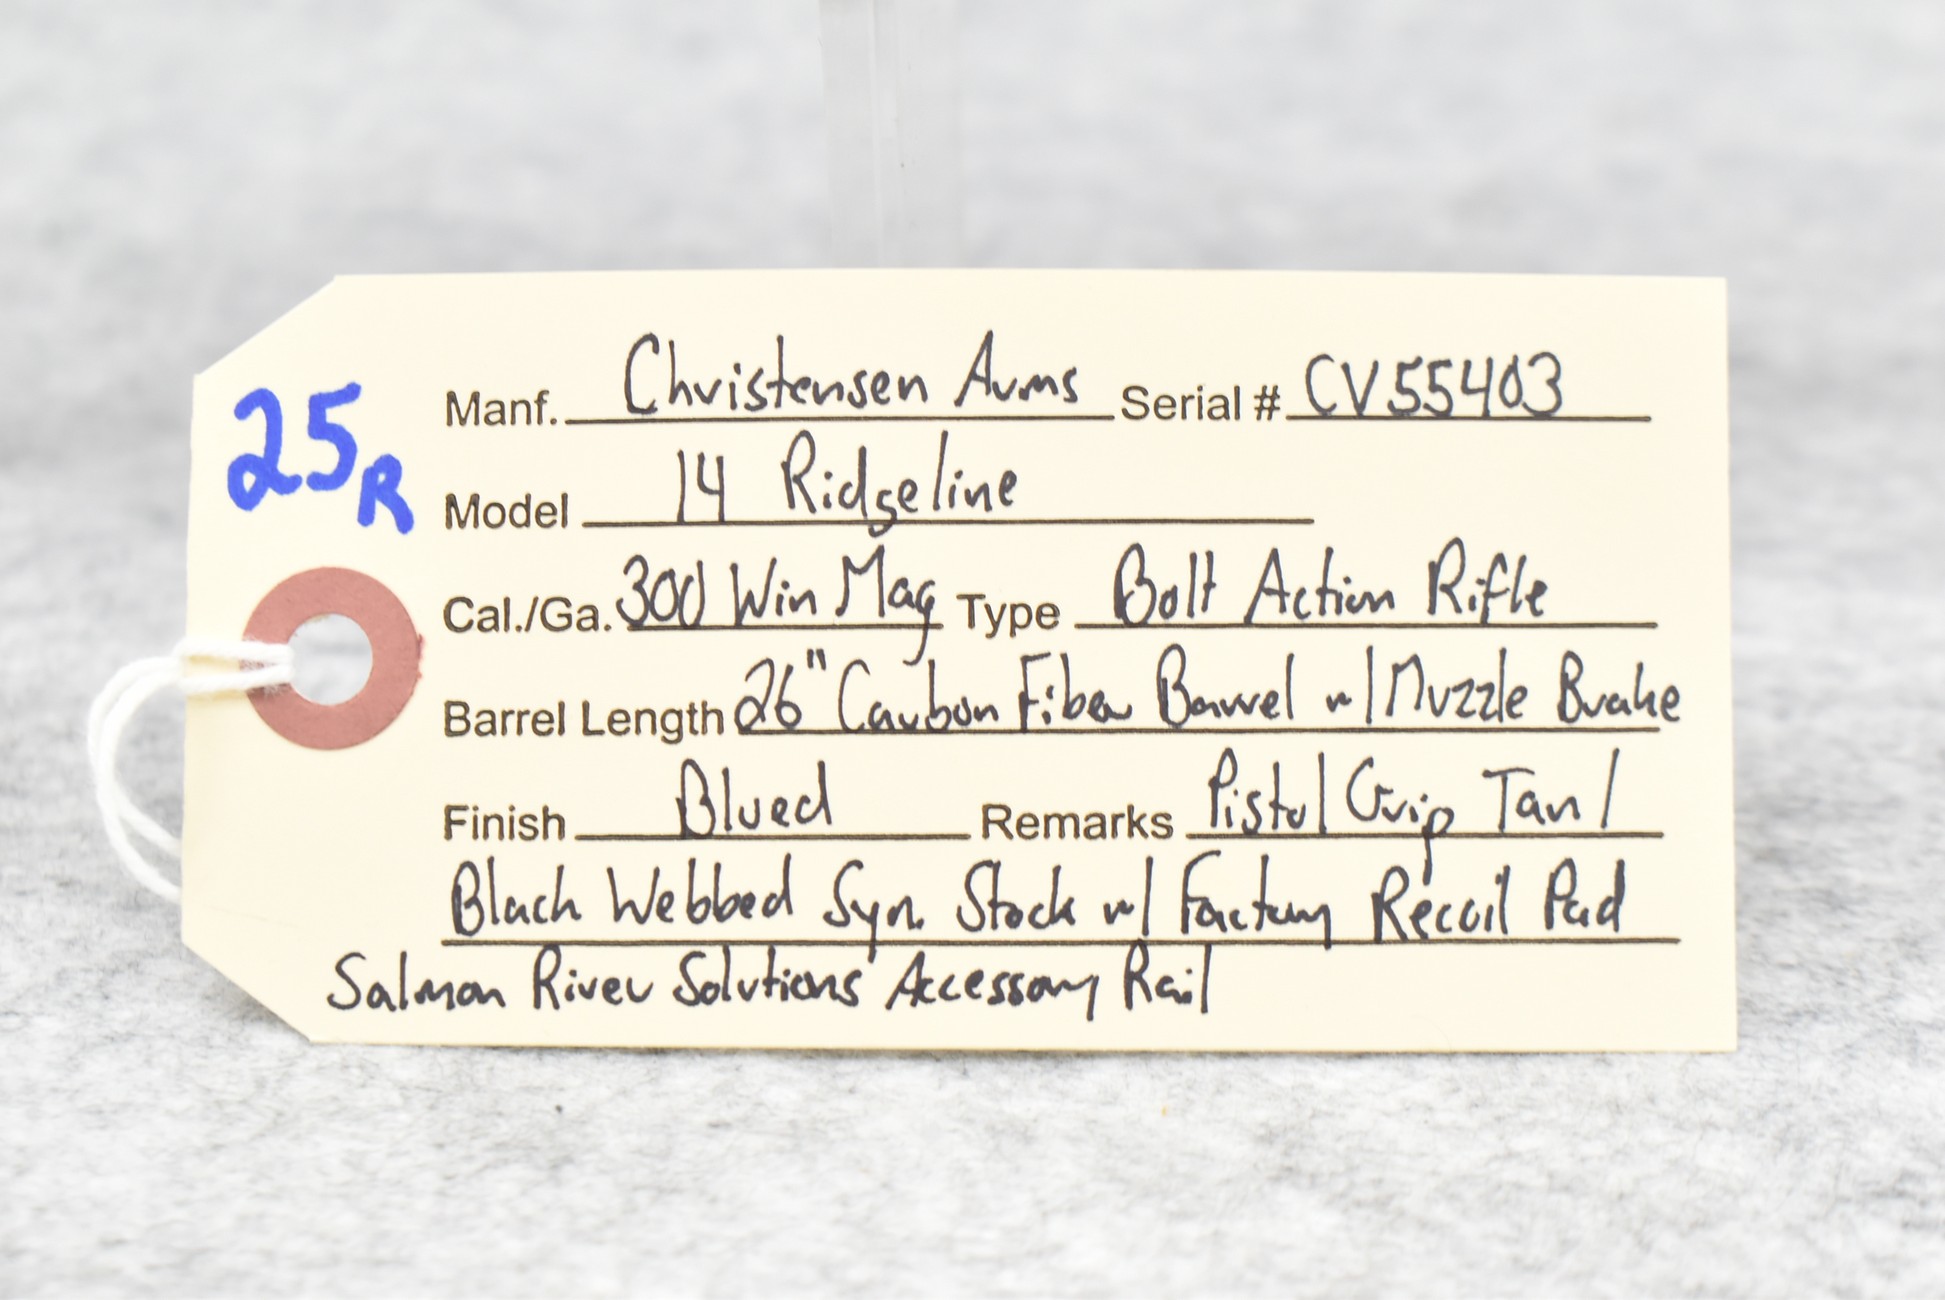 25R
Manf. Christensen Arms Serial # CV55403
Model 14 Ridgeline
Cal./Ga. 300 Win Mag Type Bolt Action Rifle
Barrel Length 26" Carbon Fiber Barrel w/ Muzzle Brake
Finish Blued Remarks Pistol Grip Tan/
Black Webbed Syn. Stock w/ Factory Recoil Pad
Salmon River Solutions Accessory Rail